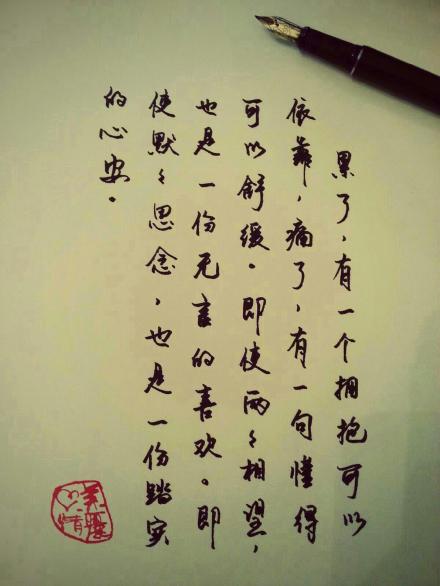 累了，有一个拥抱可以
依靠，痛了，有一句懂得
可以舒缓。即使两々相望，
也是一份无言的喜欢。即
使默々思念，也是一份踏实
的心安。